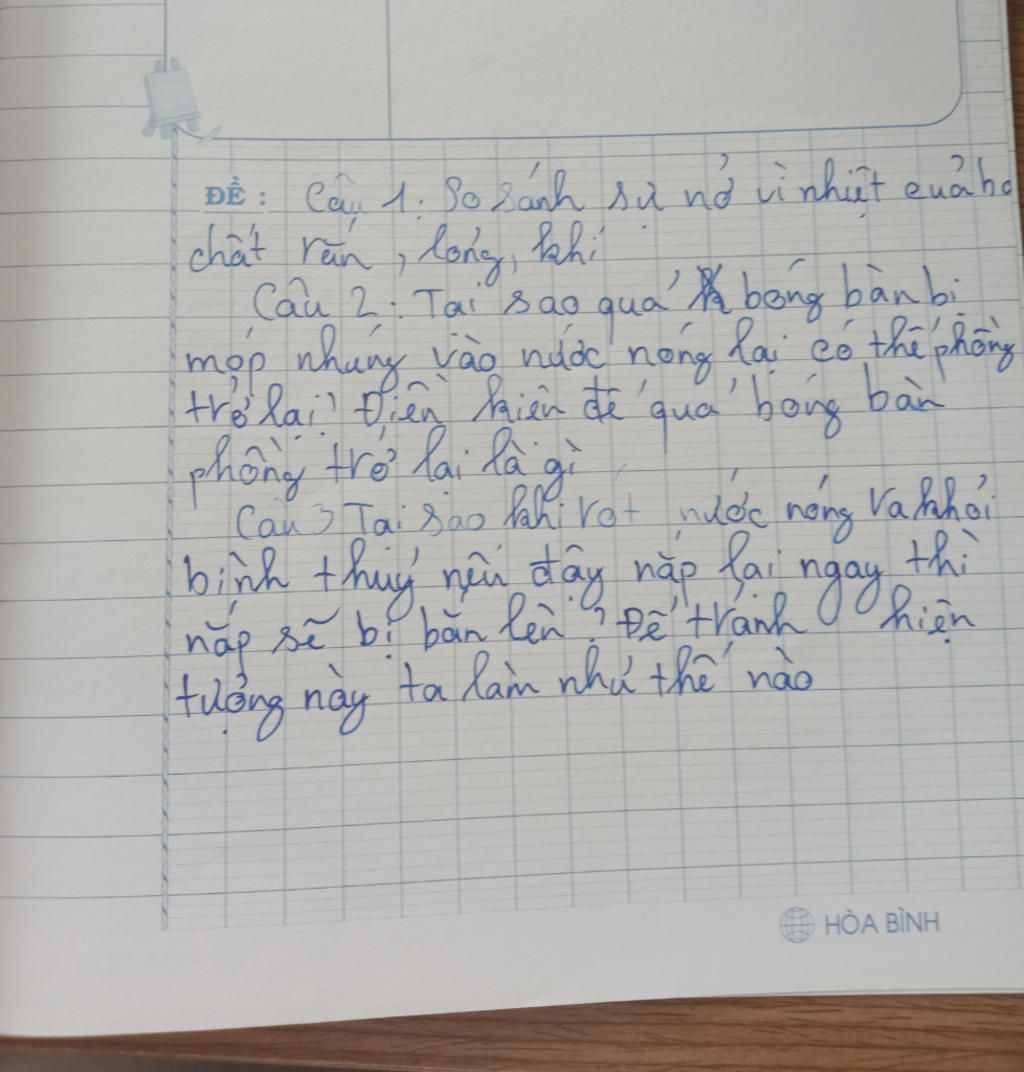 ĐỀ: Câu 1: So sánh sự nở vì nhiệt của ba
chất rắn, lỏng, khí
Câu 2: Tại sao quả bóng bàn bị
móp nhúng vào nước nóng lại có thể phồng
trở lại? Điền kiện để quả bóng bàn
phồng trở lại là gì
Câu 3 Tại sao khi rót nước nóng ra khỏi
bình thuỷ nếu đậy nắp lại ngay thì
nắp sẽ bị bắn lên? Để tránh hiện
tượng này ta làm như thế nào
HÒA BÌNH